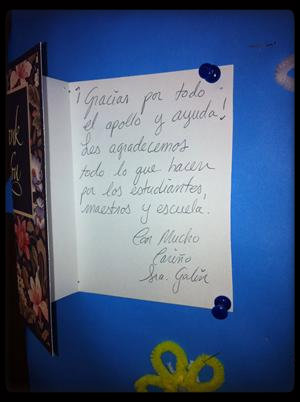 ¡Gracias por todo
el apollo y ayuda!
Les agradecemos
todo lo que hacen
por los estudiantes,
maestros y escuela.
Con Mucho
Cariño
Sra.